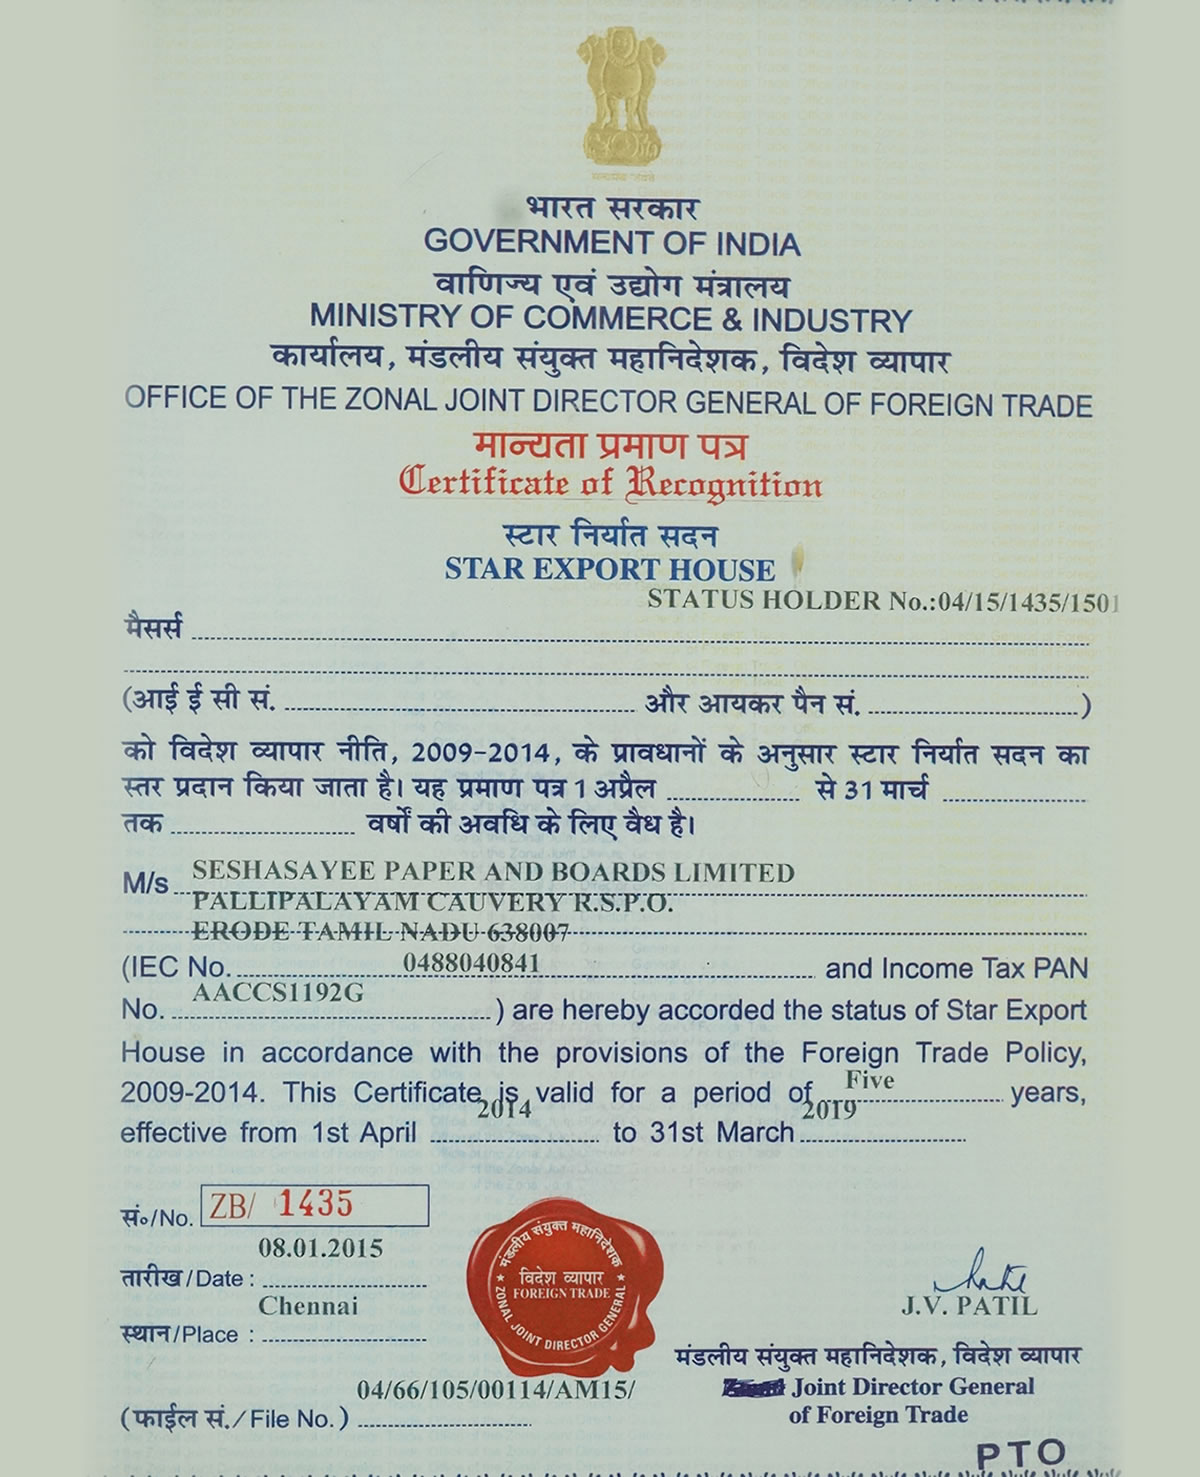 भारत सरकार
GOVERNMENT OF INDIA
वाणिज्य एवं उद्योग मंत्रालय
MINISTRY OF COMMERCE & INDUSTRY
कार्यालय, मंडलीय संयुक्त महानिदेशक, विदेश व्यापार
OFFICE OF THE ZONAL JOINT DIRECTOR GENERAL OF FOREIGN TRADE
मान्यता प्रमाण पत्र
Certificate of Recognition
स्टार निर्यात सदन
STAR EXPORT HOUSE
STATUS HOLDER No.:04/15/1435/1501
मैसर्स
(आई ई सी सं. और आयकर पैन सं. )
को विदेश व्यापार नीति, 2009-2014, के प्रावधानों के अनुसार स्टार निर्यात सदन का
स्तर प्रदान किया जाता है। यह प्रमाण पत्र 1 अप्रैल से 31 मार्च
तक वर्षों की अवधि के लिए वैध है।
M/s SESHASAYEE PAPER AND BOARDS LIMITED
PALLIPALAYAM CAUVERY R.S.P.O.
ERODE TAMIL NADU 638007
(IEC No. 0488040841 and Income Tax PAN
No. AACCS1192G ) are hereby accorded the status of Star Export
House in accordance with the provisions of the Foreign Trade Policy,
2009-2014. This Certificate is valid for a period of Five years,
effective from 1st April 2014 to 31st March 2019
सं॰/No. ZB/ 1435
08.01.2015
तारीख/Date :
Chennai
स्थान/Place :
मंडलीय संयुक्त महानिदेशक
विदेश व्यापार
FOREIGN TRADE
ZONAL JOINT DIRECTOR GENERAL
J.V. PATIL
मंडलीय संयुक्त महानिदेशक, विदेश व्यापार
Joint Director General
of Foreign Trade
04/66/105/00114/AM15/
(फाईल सं./File No.)
PTO